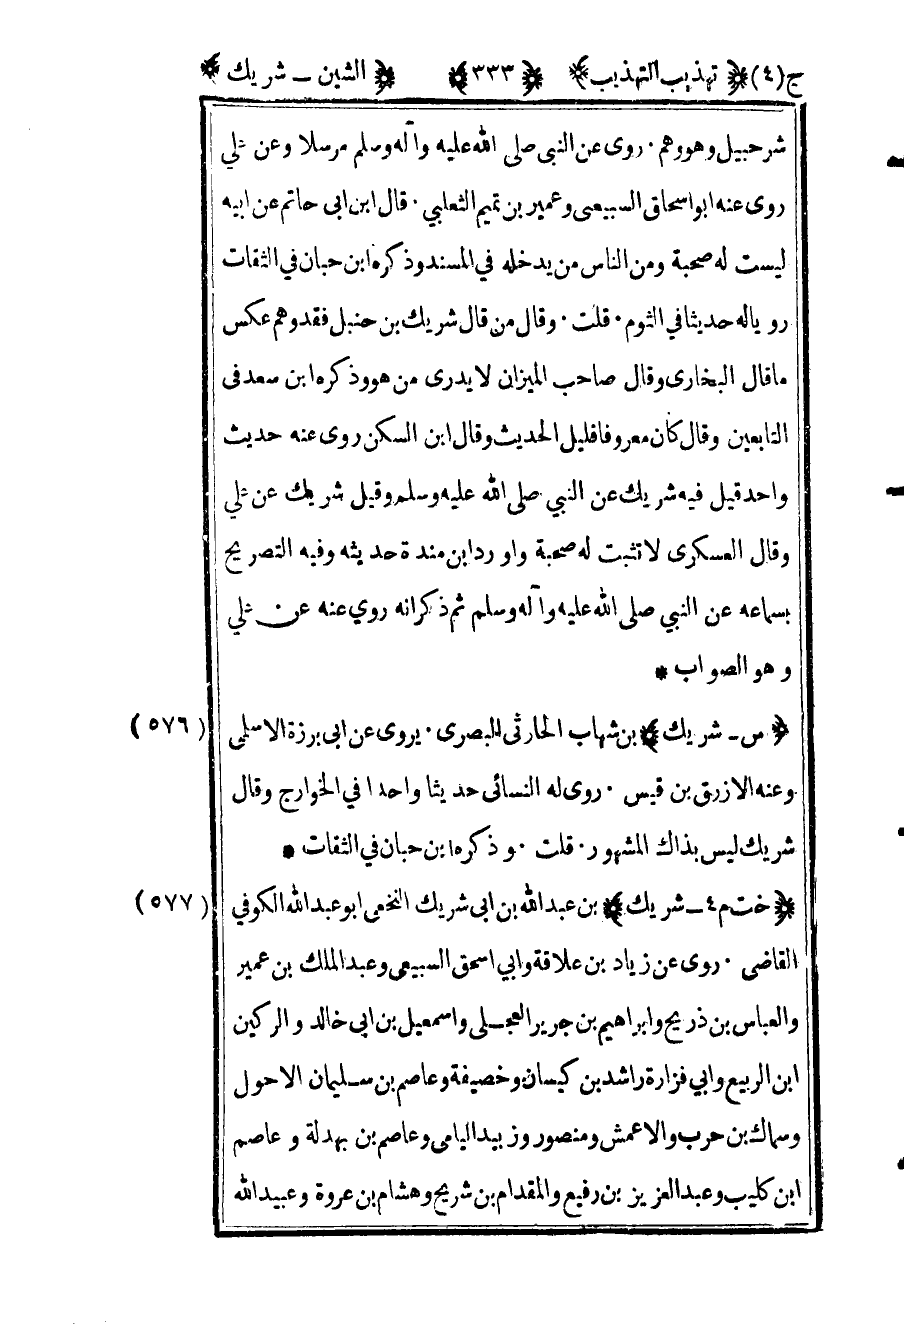 ج(٤) ﴿ تهذيب التهذيب ﴾ ﴿ ٣٣٣ ﴾ ﴿ الشين ـ شريك ﴾
شرحبيل وهو وهم · روى عن النبى صلى الله عليه وآله وسلم مرسلا وعن علي
روى عنه ابو اسحاق السبيعى وعمير بن تميم الثعلبي · قال ابن ابى حاتم عن ابيه
ليست له صحبة ومن الناس من يدخله في المسند وذكره ابن حبان في الثقات
رويا له حديثا في الثوم · قلت · وقال من قال شريك بن حنبل فقد وهم عكس
ما قال البخارى وقال صاحب الميزان لا يدرى من هو وذكره ابن سعد فى
التابعين وقال كان معروفا قليل الحديث وقال ابن السكن روى عنه حديث
واحد قيل فيه شريك عن النبي صلى الله عليه وسلم وقيل شريك عن علي
وقال العسكرى لا تثبت له صحبة واورد ابن مندة حديثه وفيه التصريح
بسماعه عن النبي صلى الله عليه وآله وسلم ثم ذكر انه روي عنه عن علي
وهو الصواب *
﴿ س ـ شريك ﴾ بن شهاب الحارثى البصرى · يروى عن ابى برزة الاسلمى (٥٧٦)
وعنه الازرق بن قيس · روى له النسائى حديثا واحدا في الخوارج وقال
شريك ليس بذاك المشهور · قلت · وذكره ابن حبان في الثقات *
﴿ خت م ٤ ـ شريك ﴾ بن عبدالله بن ابى شريك النخعى ابو عبدالله الكوفي (٥٧٧)
القاضى · روى عن زياد بن علاقة وابي اسحق السبيعى وعبدالملك بن عمير
والعباس بن ذريح وابراهيم بن جرير العجلى واسمعيل بن ابى خالد والركين
ابن الربيع وابي فزارة راشد بن كيسان وخصيفة وعاصم بن سليمان الاحول
وسماك بن حرب والاعمش ومنصور وزبيد اليامى وعاصم بن بهدلة وعاصم
ابن كليب وعبدالعزيز بن رفيع والمقدام بن شريح وهشام بن عروة وعبيدالله